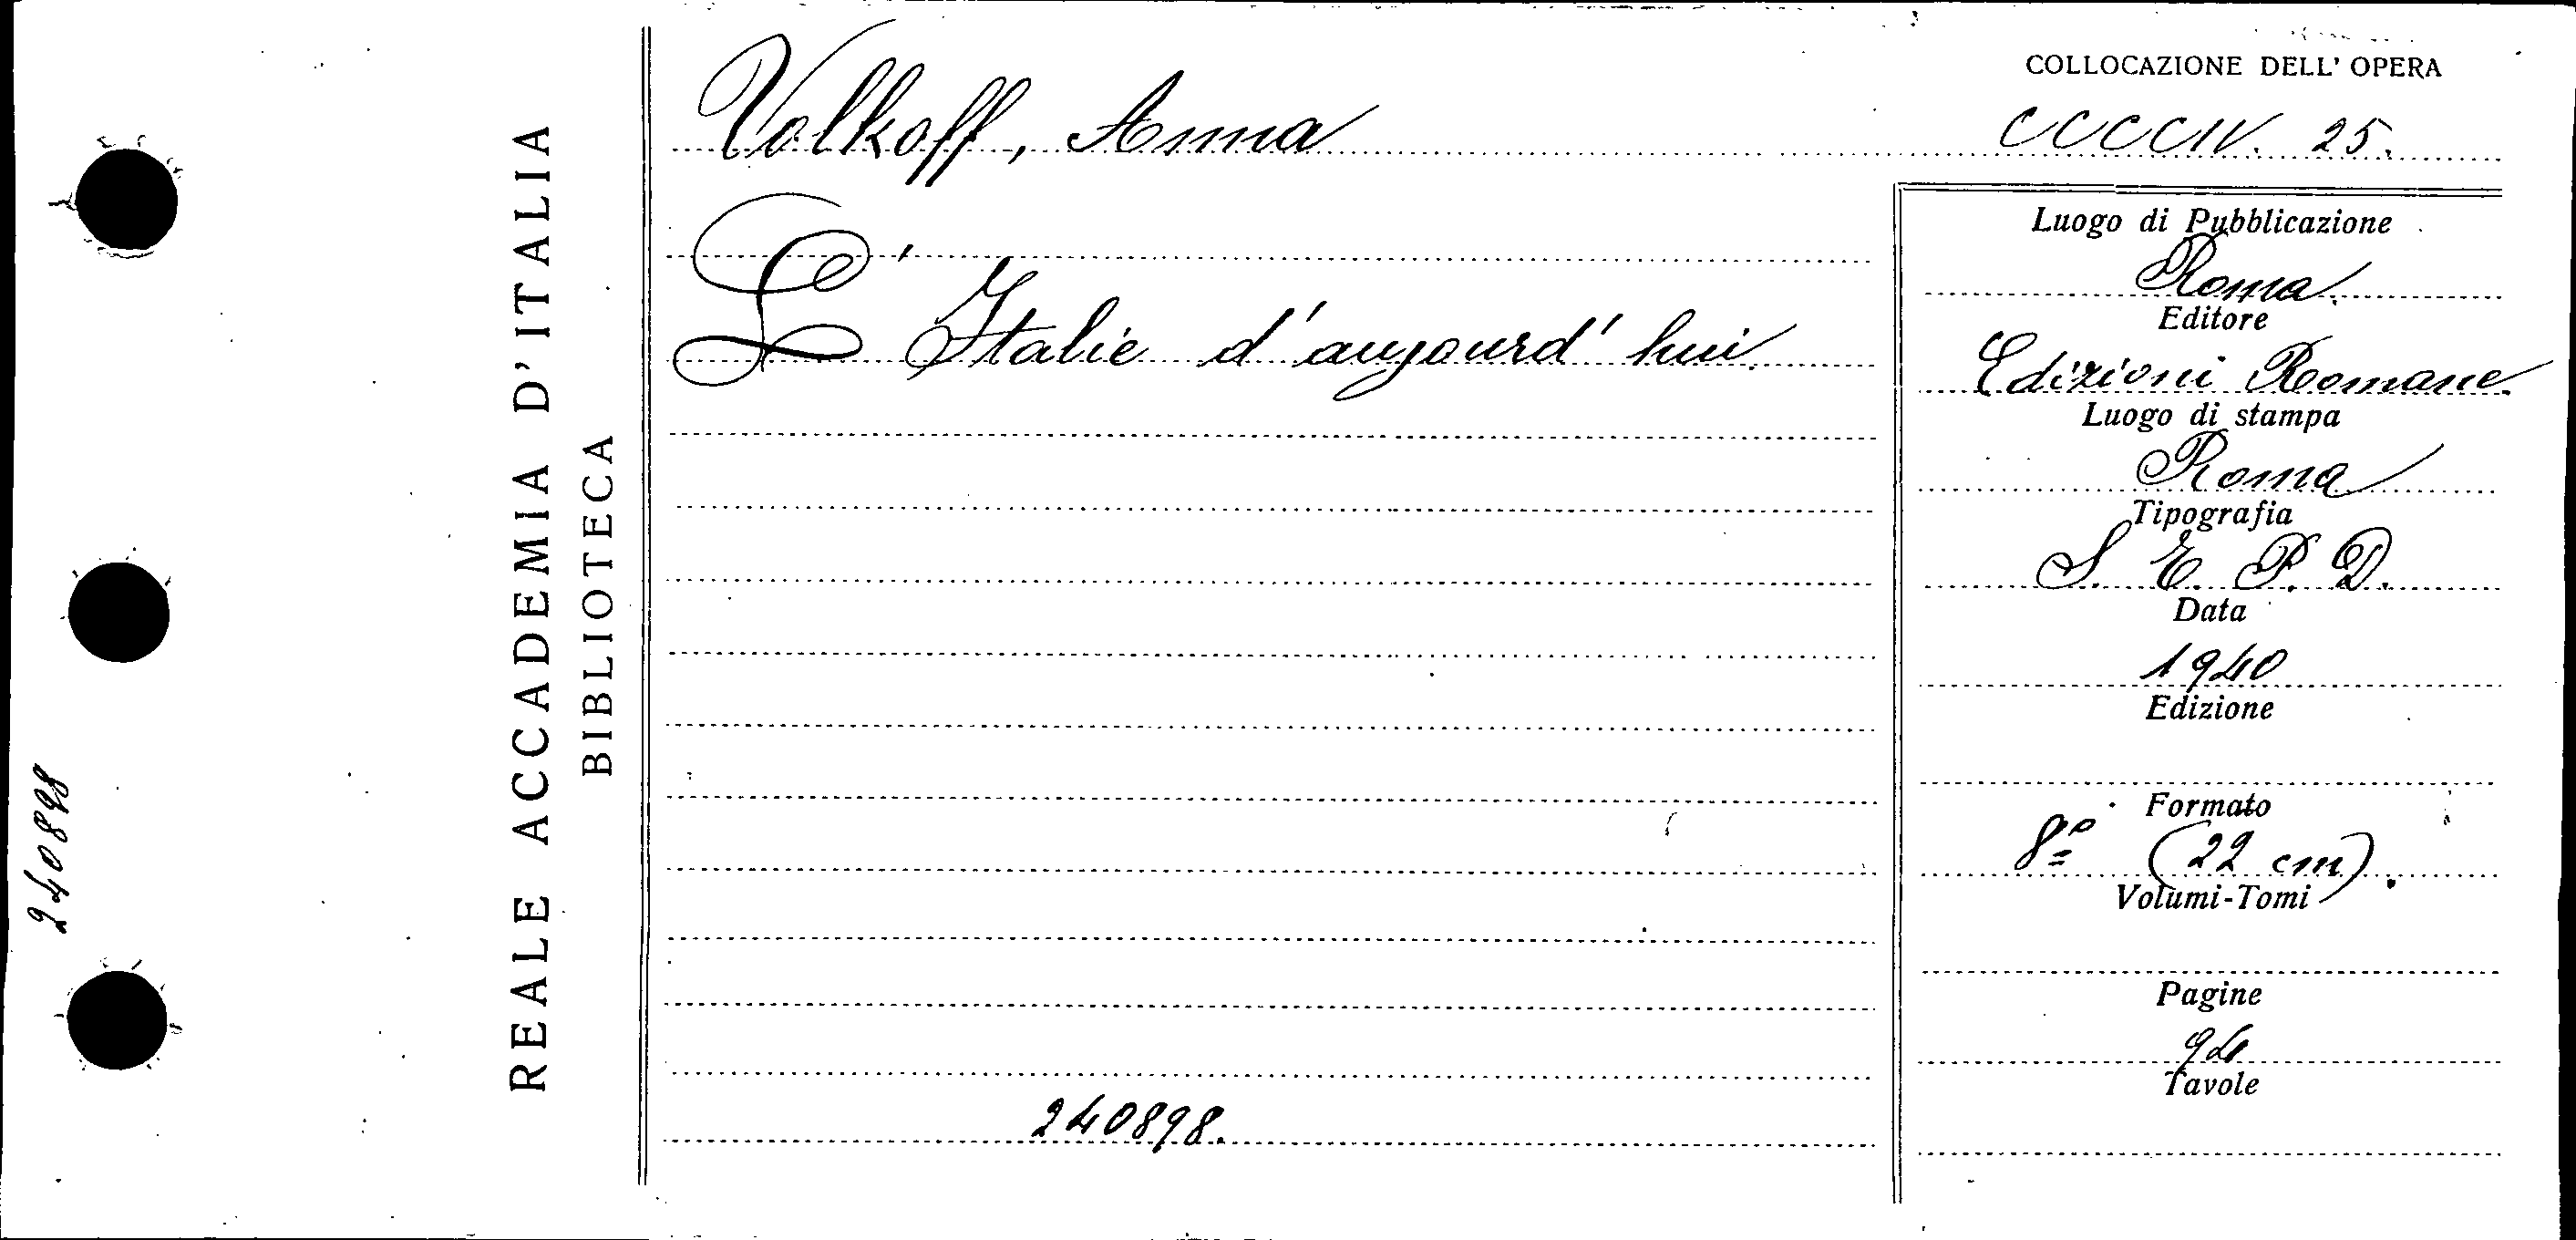 REALE ACCADEMIA D'ITALIA
BIBLIOTECA
240898
Volkoff, Anna
L'Italie d'aujourd'hui.
240898.
COLLOCAZIONE DELL' OPERA
CCCCIV. 25.
Luogo di Pubblicazione
Roma.
Editore
Edizioni Romane.
Luogo di stampa
Roma
Tipografia
S. E. P. D.
Data
1940
Edizione
Formato
8º (22 cm).
Volumi-Tomi
Pagine
94
Tavole